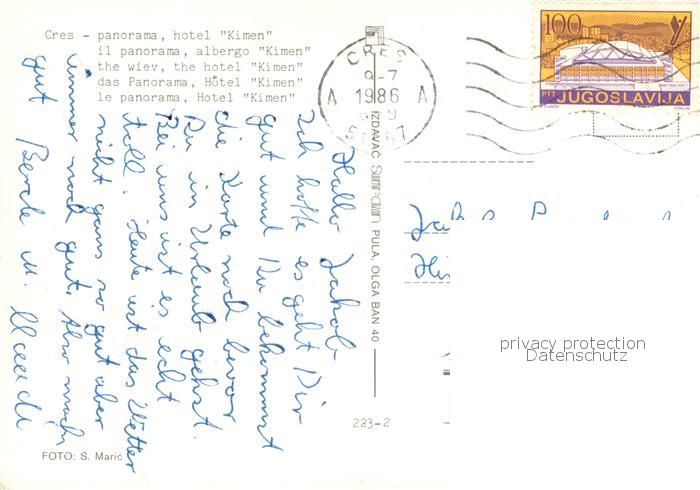 Cres - panorama, hotel "Kimen"
il panorama, albergo "Kimen"
the wiev, the hotel "Kimen"
das Panorama, Hotel "Kimen"
le panorama, Hotel "Kimen"
CRES
9-7
A 1986 A
100
PTT JUGOSLAVIJA
Hallo Jakob
Ich hoffe es geht Dir
gut und Du bekommst
die Karte noch bevor
Du in Urlaub gehst.
Bei uns ist es echt
toll. Heute ist das Wetter
nicht ganz so gut aber
immer noch gut. Also mach
gut
IZDAVAČ PULA, OLGA BAN 40
223-2
FOTO: S. Marić
privacy protection
Datenschutz